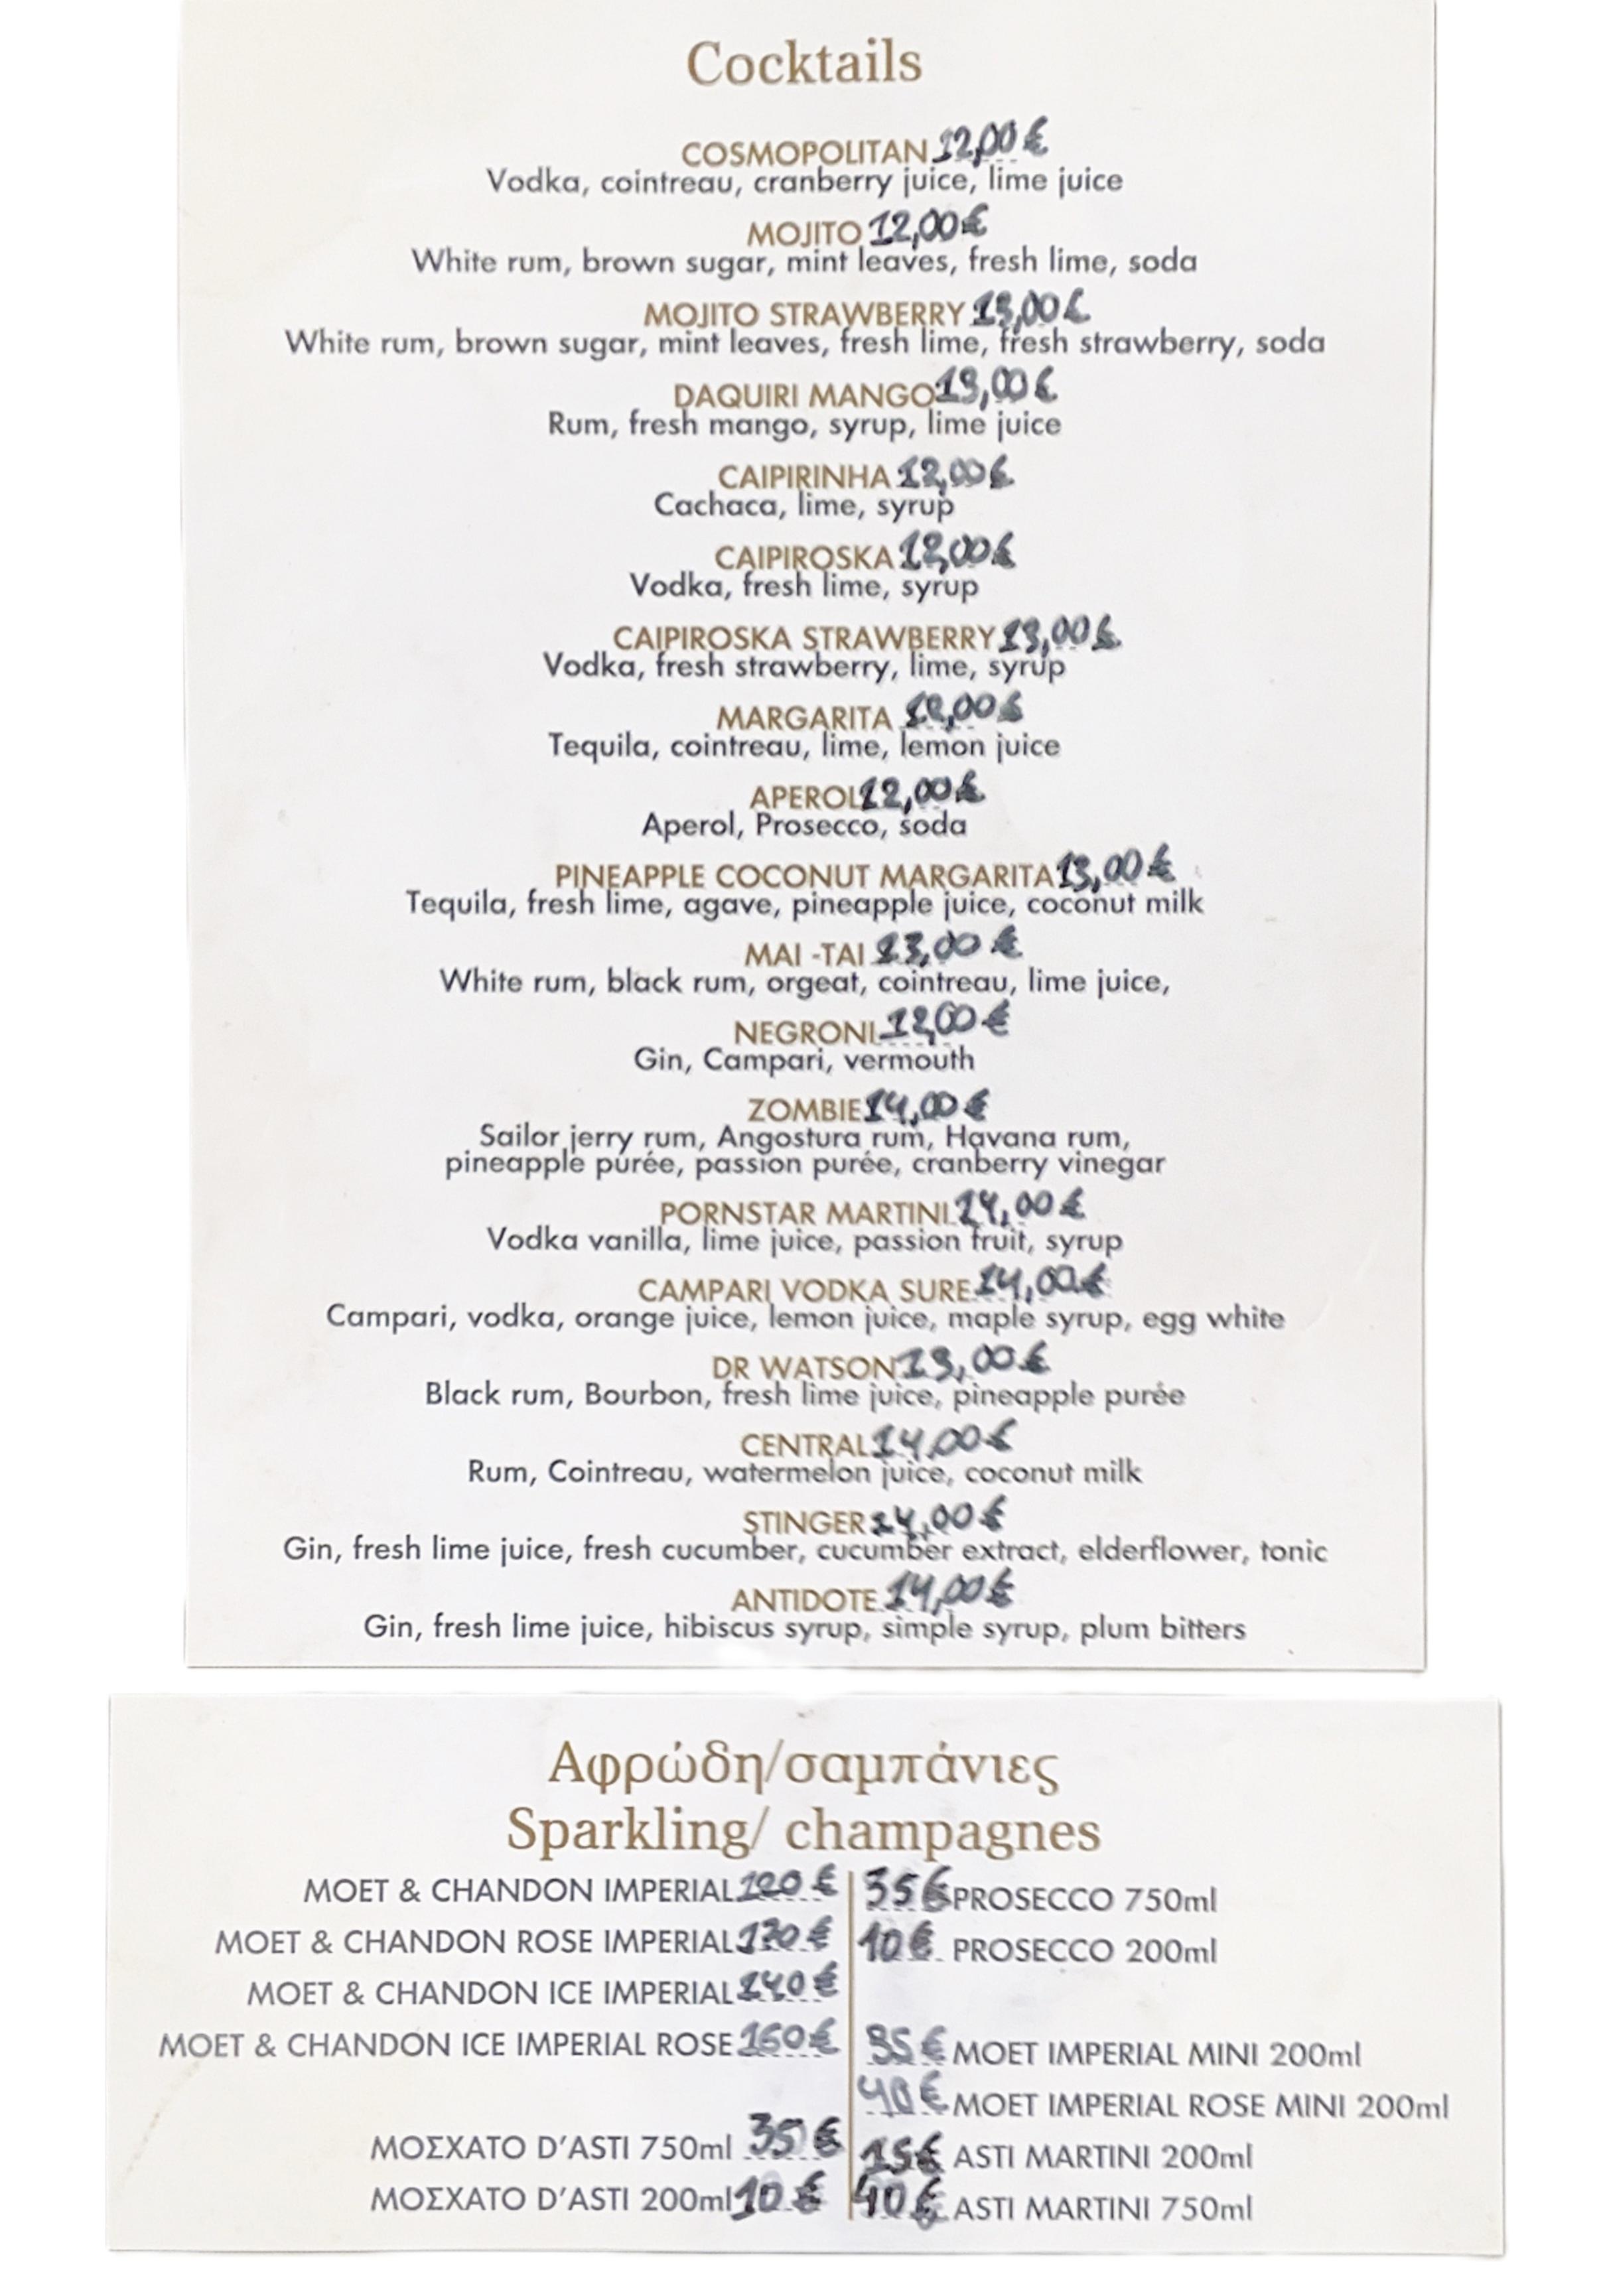 Cocktails
COSMOPOLITAN 12,00 €
Vodka, cointreau, cranberry juice, lime juice
MOJITO 12,00 €
White rum, brown sugar, mint leaves, fresh lime, soda
MOJITO STRAWBERRY 13,00 €
White rum, brown sugar, mint leaves, fresh lime, fresh strawberry, soda
DAQUIRI MANGO 13,00 €
Rum, fresh mango, syrup, lime juice
CAIPIRINHA 12,00 €
Cachaca, lime, syrup
CAIPIROSKA 12,00 €
Vodka, fresh lime, syrup
CAIPIROSKA STRAWBERRY 13,00 €
Vodka, fresh strawberry, lime, syrup
MARGARITA 12,00 €
Tequila, cointreau, lime, lemon juice
APEROL 12,00 €
Aperol, Prosecco, soda
PINEAPPLE COCONUT MARGARITA 13,00 €
Tequila, fresh lime, agave, pineapple juice, coconut milk
MAI -TAI 13,00 €
White rum, black rum, orgeat, cointreau, lime juice,
NEGRONI 12,00 €
Gin, Campari, vermouth
ZOMBIE 14,00 €
Sailor jerry rum, Angostura rum, Havana rum,
pineapple purée, passion purée, cranberry vinegar
PORNSTAR MARTINI 14,00 €
Vodka vanilla, lime juice, passion fruit, syrup
CAMPARI VODKA SURE 14,00 €
Campari, vodka, orange juice, lemon juice, maple syrup, egg white
DR WATSON 13,00 €
Black rum, Bourbon, fresh lime juice, pineapple purée
CENTRAL 14,00 €
Rum, Cointreau, watermelon juice, coconut milk
STINGER 14,00 €
Gin, fresh lime juice, fresh cucumber, cucumber extract, elderflower, tonic
ANTIDOTE 14,00 €
Gin, fresh lime juice, hibiscus syrup, simple syrup, plum bitters
Αφρώδη/σαμπάνιες
Sparkling/ champagnes
MOET & CHANDON IMPERIAL 120 €
MOET & CHANDON ROSE IMPERIAL 130 €
MOET & CHANDON ICE IMPERIAL 140 €
MOET & CHANDON ICE IMPERIAL ROSE 160 €
ΜΟΣΧΑΤΟ D'ASTI 750ml 35 €
ΜΟΣΧΑΤΟ D'ASTI 200ml 10 €
35 € PROSECCO 750ml
10 € PROSECCO 200ml
35 € MOET IMPERIAL MINI 200ml
40 € MOET IMPERIAL ROSE MINI 200ml
15 € ASTI MARTINI 200ml
40 € ASTI MARTINI 750ml